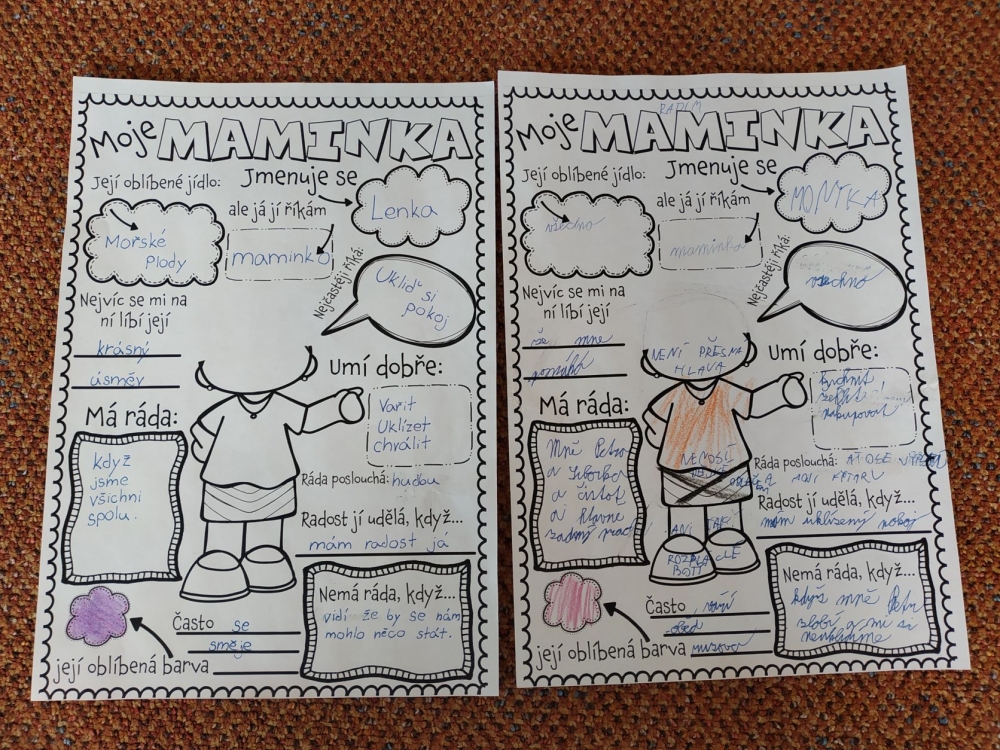 Moje MAMINKA
Její oblíbené jídlo:
Mořské
Plody
Jmenuje se
Lenka
ale já jí říkám
maminko
Nejčastěji říká:
Ukliď si
pokoj
Nejvíc se mi na
ní líbí její
krásný
úsměv
Umí dobře:
Vařit
Uklízet
chválit
Má ráda:
když
jsme
všichni
spolu.
Ráda poslouchá: hudbu
Radost jí udělá, když...
mám radost já
Nemá ráda, když...
vidí že by se nám
mohlo něco stát.
Často se
směje
její oblíbená barva
RADIM
Moje MAMINKA
Její oblíbené jídlo:
všechno
Jmenuje se
MONIKA
ale já jí říkám
maminko
Nejčastěji říká:
všechno
Nejvíc se mi na
ní líbí její
že mne
pomáhá
NENÍ PŘESNÁ
HLAVA
Umí dobře:
nakupovat
Má ráda:
Mně Petra
a
a čistot
a hlavne
NENOSÍ
Ráda poslouchá:
MOJÍ KYTARU
Radost jí udělá, když...
mam uklizený pokoj
ANI TAK
ROZPLACLÉ
BOTI
Nemá ráda, když...
když mně Petr
zlobí a mi si
Často
její oblíbená barva růžová